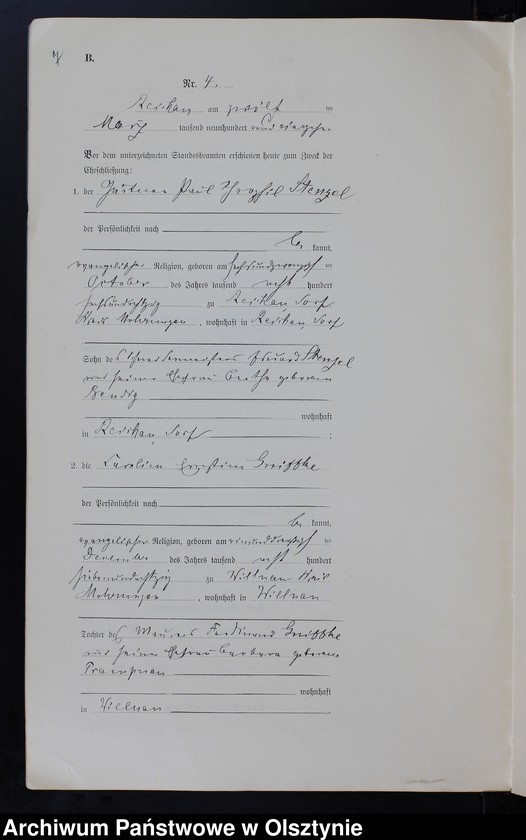 B.
Nr. 4.
Reichau am zwölf ten
März tausend neunhundert und vierzehn.
Vor dem unterzeichneten Standesbeamten erschienen heute zum Zweck der
Eheschließung:
1. der Gärtner Paul Theophil Stenzel
der Persönlichkeit nach
be kannt,
evangelischer Religion, geboren am sechsundzwanzigsten
October des Jahres tausend acht hundert
sechsundachtzig zu Reichau, Dorf
Kreis Mohrungen, wohnhaft in Reichau, Dorf
Sohn des Schneidermeisters Eduard Stenzel
und seiner Ehefrau Bertha geborene
wohnhaft
in Reichau, Dorf ;
2. die Ernestine
der Persönlichkeit nach
be kannt,
evangelischer Religion, geboren am einunddreißigsten
December des Jahres tausend acht hundert
siebenundachtzig zu Willnau Kreis
Mohrungen, wohnhaft in Willnau
Tochter des Maurers Ferdinand
und seiner Ehefrau Barbara geborene
wohnhaft
in Willnau
Archiwum Państwowe w Olsztynie